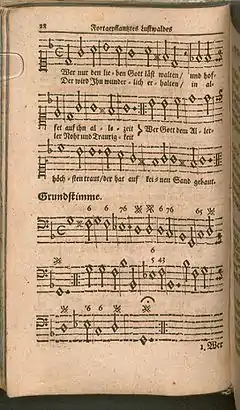 28 Fortgepflantztes Lustwaldes
Wer nur den lie-ben Gott läst walten / und hof-
Der wird Ihn wunder-lich er-halten / in al-
fet auf ihn al-le-zeit Wer Gott dem Al-ler-
ler Noht und Traurig-keit
höch-sten traut / der hat auf kei-nen Sand gebaut.
Grundstimme.
6 6 76 6 76 65
6
5 43
6 6
1. Wer